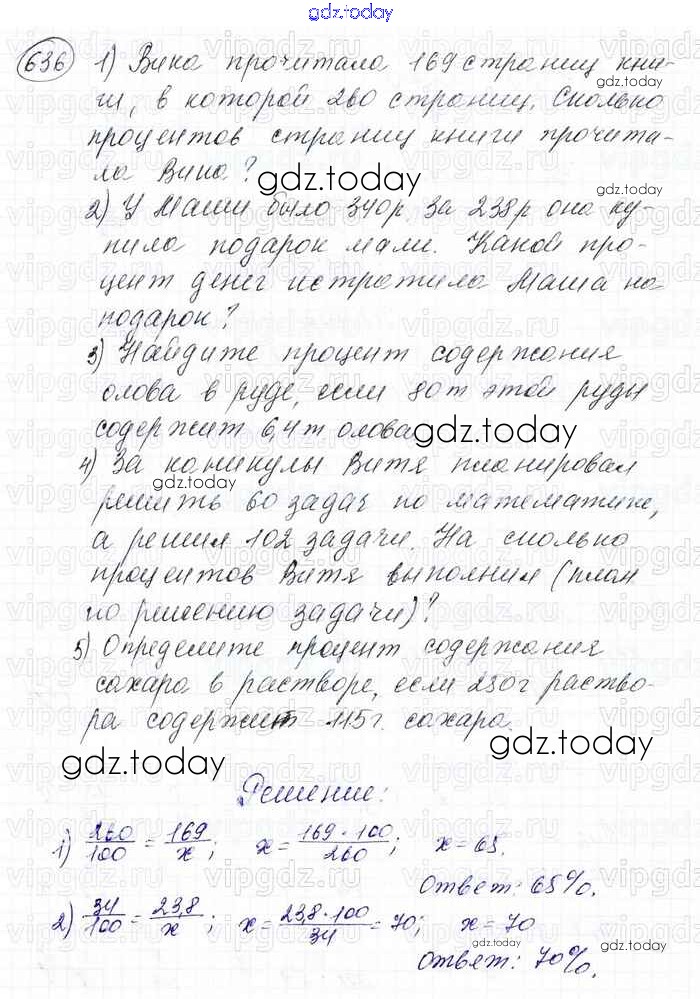 gdz.today
636 1) Вика прочитала 169 страниц кни-
ги, в которой 260 страниц. Сколько
gdz.today
процентов страниц книги прочита-
ла Вика?
gdz.today
2) У Маши было 340р. За 238р она ку-
пила подарок маме. Какой про-
цент денег истратила Маша на
подарок?
3) Найдите процент содержания
олова в руде, если 80т этой руды
содержит 6,4т олова
gdz.today
4) За каникулы Витя планировал
решить 60 задач по математике,
а решил 102 задачи. На сколько
процентов Витя выполнил (план
по решению задачи)?
5) Определите процент содержания
сахара в растворе, если 250г раство-
ра содержит 115г. сахара.
gdz.today
gdz.today
Решение:
1) 260/100 = 169/x; x = 169·100/260; x = 65.
Ответ: 65%.
2) 34/100 = 23,8/x; x = 23,8·100/34 = 70; x = 70
Ответ: 70%.
gdz.today
gdz.today